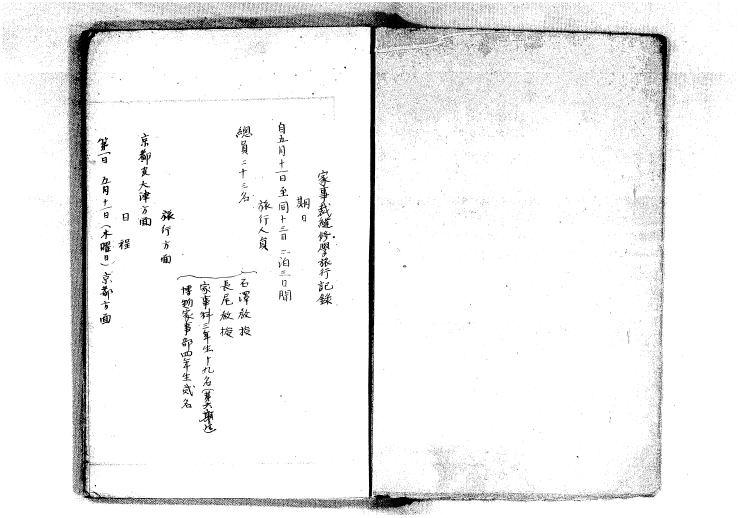 家事裁縫修學旅行記録
期日
自五月十一日至同十三日二泊三日間
旅行人員
總員二十三名
石澤教授
長尾教授
家事科三年生十九名(第六期生
博物家事部四年生貳名
旅行方面
京都及大津方面
日程
第一日 五月十一日(木曜日)京都方面